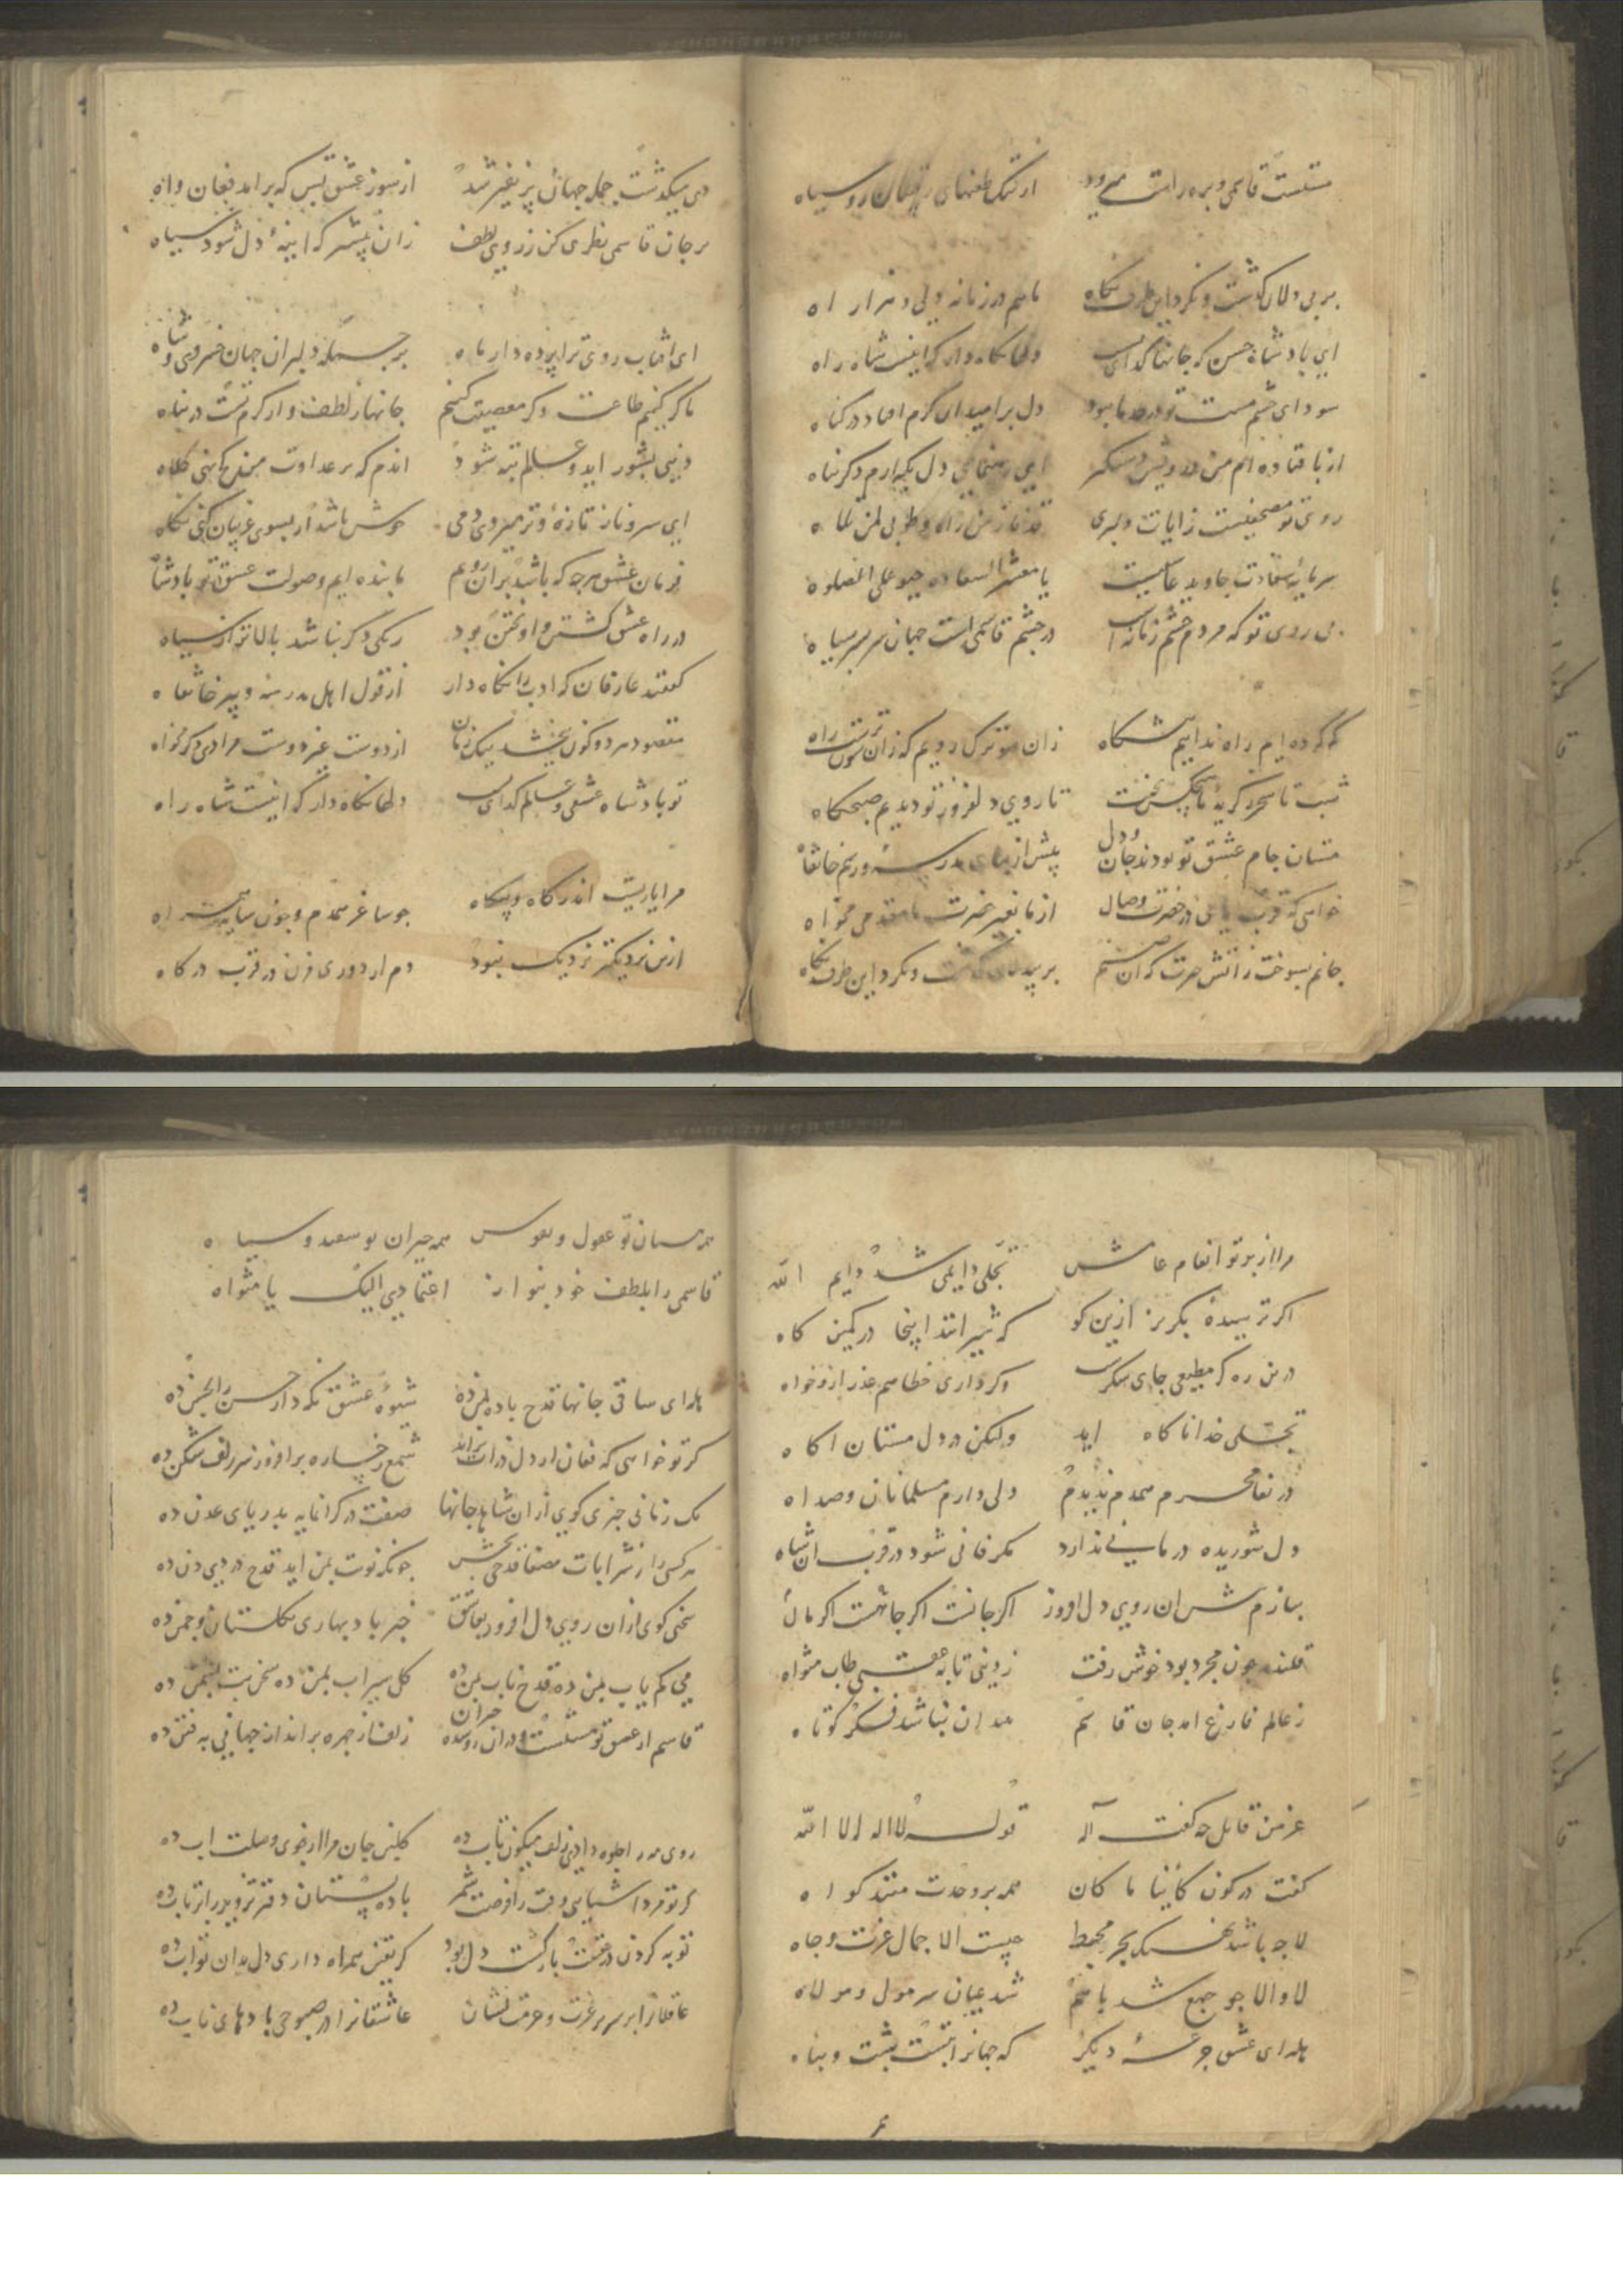 مستست قاسمی و بره راست میرود از تنگ طعنهای رقیبان رو سیاه
بر بی دلان گذشت و نکرد این طرف نگاه ماییم در زمانه ولی و هزار اه
ای پادشاه حسن که جانها گدای دلها نگاه دار که اینست شاه راه
سودای چشم مست تو در دما بود دل بر امیدان کرم افتاد در گناه
از پا فتاده ایم من درویش دستگیر ای رهنمای دل یکه ارم دگر پناه
روی تو مصحفیست ز ایات دلبری
سرمایه سعادت جاوید عاشقیست یا معشر السعاده حیو علی الصلوه
بی روی تو که مردم چشم زمانه در چشم قاسمی است جهان سر بسر سیاه
گم کرده ایم راه ندانیم زان سو ترک رویم که زان
شب تا سحر گریه ما هیچکس نخفت تا رویی دلفروز تو دیدیم صبحگاه
مستان جام عشق تو بودند جان و دل پیش از بنای مدرسه و رسم خانقاه
خواهی که قربت یابی در حضرت وصال از ما بغیر عمرت مخواه
جانم بسوخت ز اتش حسرت که ان صنم بر بیدلان گذشت و نکرد این طرف نگاه
می میگذشت جمله جهان پر نفیر شد از سوز عشق بس که بر امد فغان و اه
بر جان قاسمی نظری کن ز روی لطف زان پیشتر که اینهٔ دل شود سیاه
ای افتاب روی ترا پرده دار ماه بر جمله دلبران جهان خسروی و شاه
ما گر کنیم طاعت و گر معصیت کنیم جانها ز لطف و از کرمتست در پناه
دنیی بشور اید و عالم بته شود اندم که بر عداوت من کج نهی کلاه
ای سرو ناز تازه و تر میروی دمی خوش باشد ار بسوی غریبان کنی نگاه
فرمان عشق هرچه که باشد بران رویم ما بنده ایم و صولت عشق تو پادشاه
در راه عشق کشتن و اویختن بود رنگی دگر نباشد بالاتر از سیاه
گفتند عارفان که ادب را نگاه دار از قول اهل مدرسه و پیر خانقاه
مقصود هر دو کون ببخشد بیک زمان از دوست غیر دوست مرادی دگر مخواه
تو پادشاه عشقی و عالم گدای دلها نگاه دار که اینست شاه راه
مرا یاریست اندر گاه و بیگاه چو ساغر همدم و چون سایه همراه
ازین نزدیکتر نزدیک نبود دم از دوری مزن در قرب درگاه
مرا از پرتو انعام عامش تجلی دایمی شد دایم الله
اگر ترسیدهٔ بگریز ازین کو که شیر انند اینجا در کمین گاه
درین ره گر مطیعی جای شکرست و گر داری خطا هم عذر ازو خواه
تجلی خدا ناگاه اید ولیکن در دل مستان اگاه
درینغا محرم همدم ندیدم ولی دارم مسلمانان و صد اه
دل شوریده درمانی ندارد مگر فانی شود در قرب ان شاه
ببازم پیش ان روی دل افروز اگر جانست اگر جاهست اگر مال
قلندر چون مجرد بود خوش رفت ز دنیی تا به عقبی طاب مثواه
ز عالم فارغ امد جان قاسم مدان نباشد فکر کوتاه
غرض قایل چه گفت آله قولـه لا اله الا الله
گفت در کون کاینا ما کان همه بر وحدت منند گواه
لا چه باشد نهنگ بحر محیط چیست الا جمال عزت و جاه
لا و الا چو جمع شد با هم شد عیان سر مولی و مولاه
هله ای عشق جرعهٔ دیگر که جهانرا تست پشت و پناه
همه مستان تو عقول و نفوس همه حیران تو سفید و سیاه
قاسمی را بلطف خود بنواز اعتمادیی الیک یا مثواه
هله ای ساقی جانها قدح باده بمن ده شیوهٔ عشق نگه دار حسن را بحسن ده
گر تو خواهی که فغان از دل ذرات براید شمع رخساره بر افروز سر زلف شکن ده
یک زمانی خبری گوی از ان شاه جانها صفت در گرانمایه بدریای عدن ده
هر کسی را ز شرابات مصفا قدحی بخش چونکه نوبت بمن اید قدح دردیی دن ده
سخنی گوی ازان رویی دل افروز بعاشق خبر باد بهاری بگلستان و چمن ده
می گم یاب بمن ده قدح ناب بمن ده گل سیراب بمن ده سخن بت بشمن ده
قاسم از عشق تو مستست و دران حیران زلف از چهره بر انداز جهانی به فتن ده
روی مه را جلوه دادی زلف میگون تاب ده گلبن جان مرا از جوی وصلت اب ده
گر تو فردا شناسی وقت را فرصت شمر باده پستان دفتر تزویر را بر تاب ده
توبه کردن در عقبت بارگشت دل بود گر یقین همراه داری دل بدان تواب ده
عاقلانرا بر سریر عزت و حرمت نشان عاشقانرا در صبوحی بادهای ناب ده